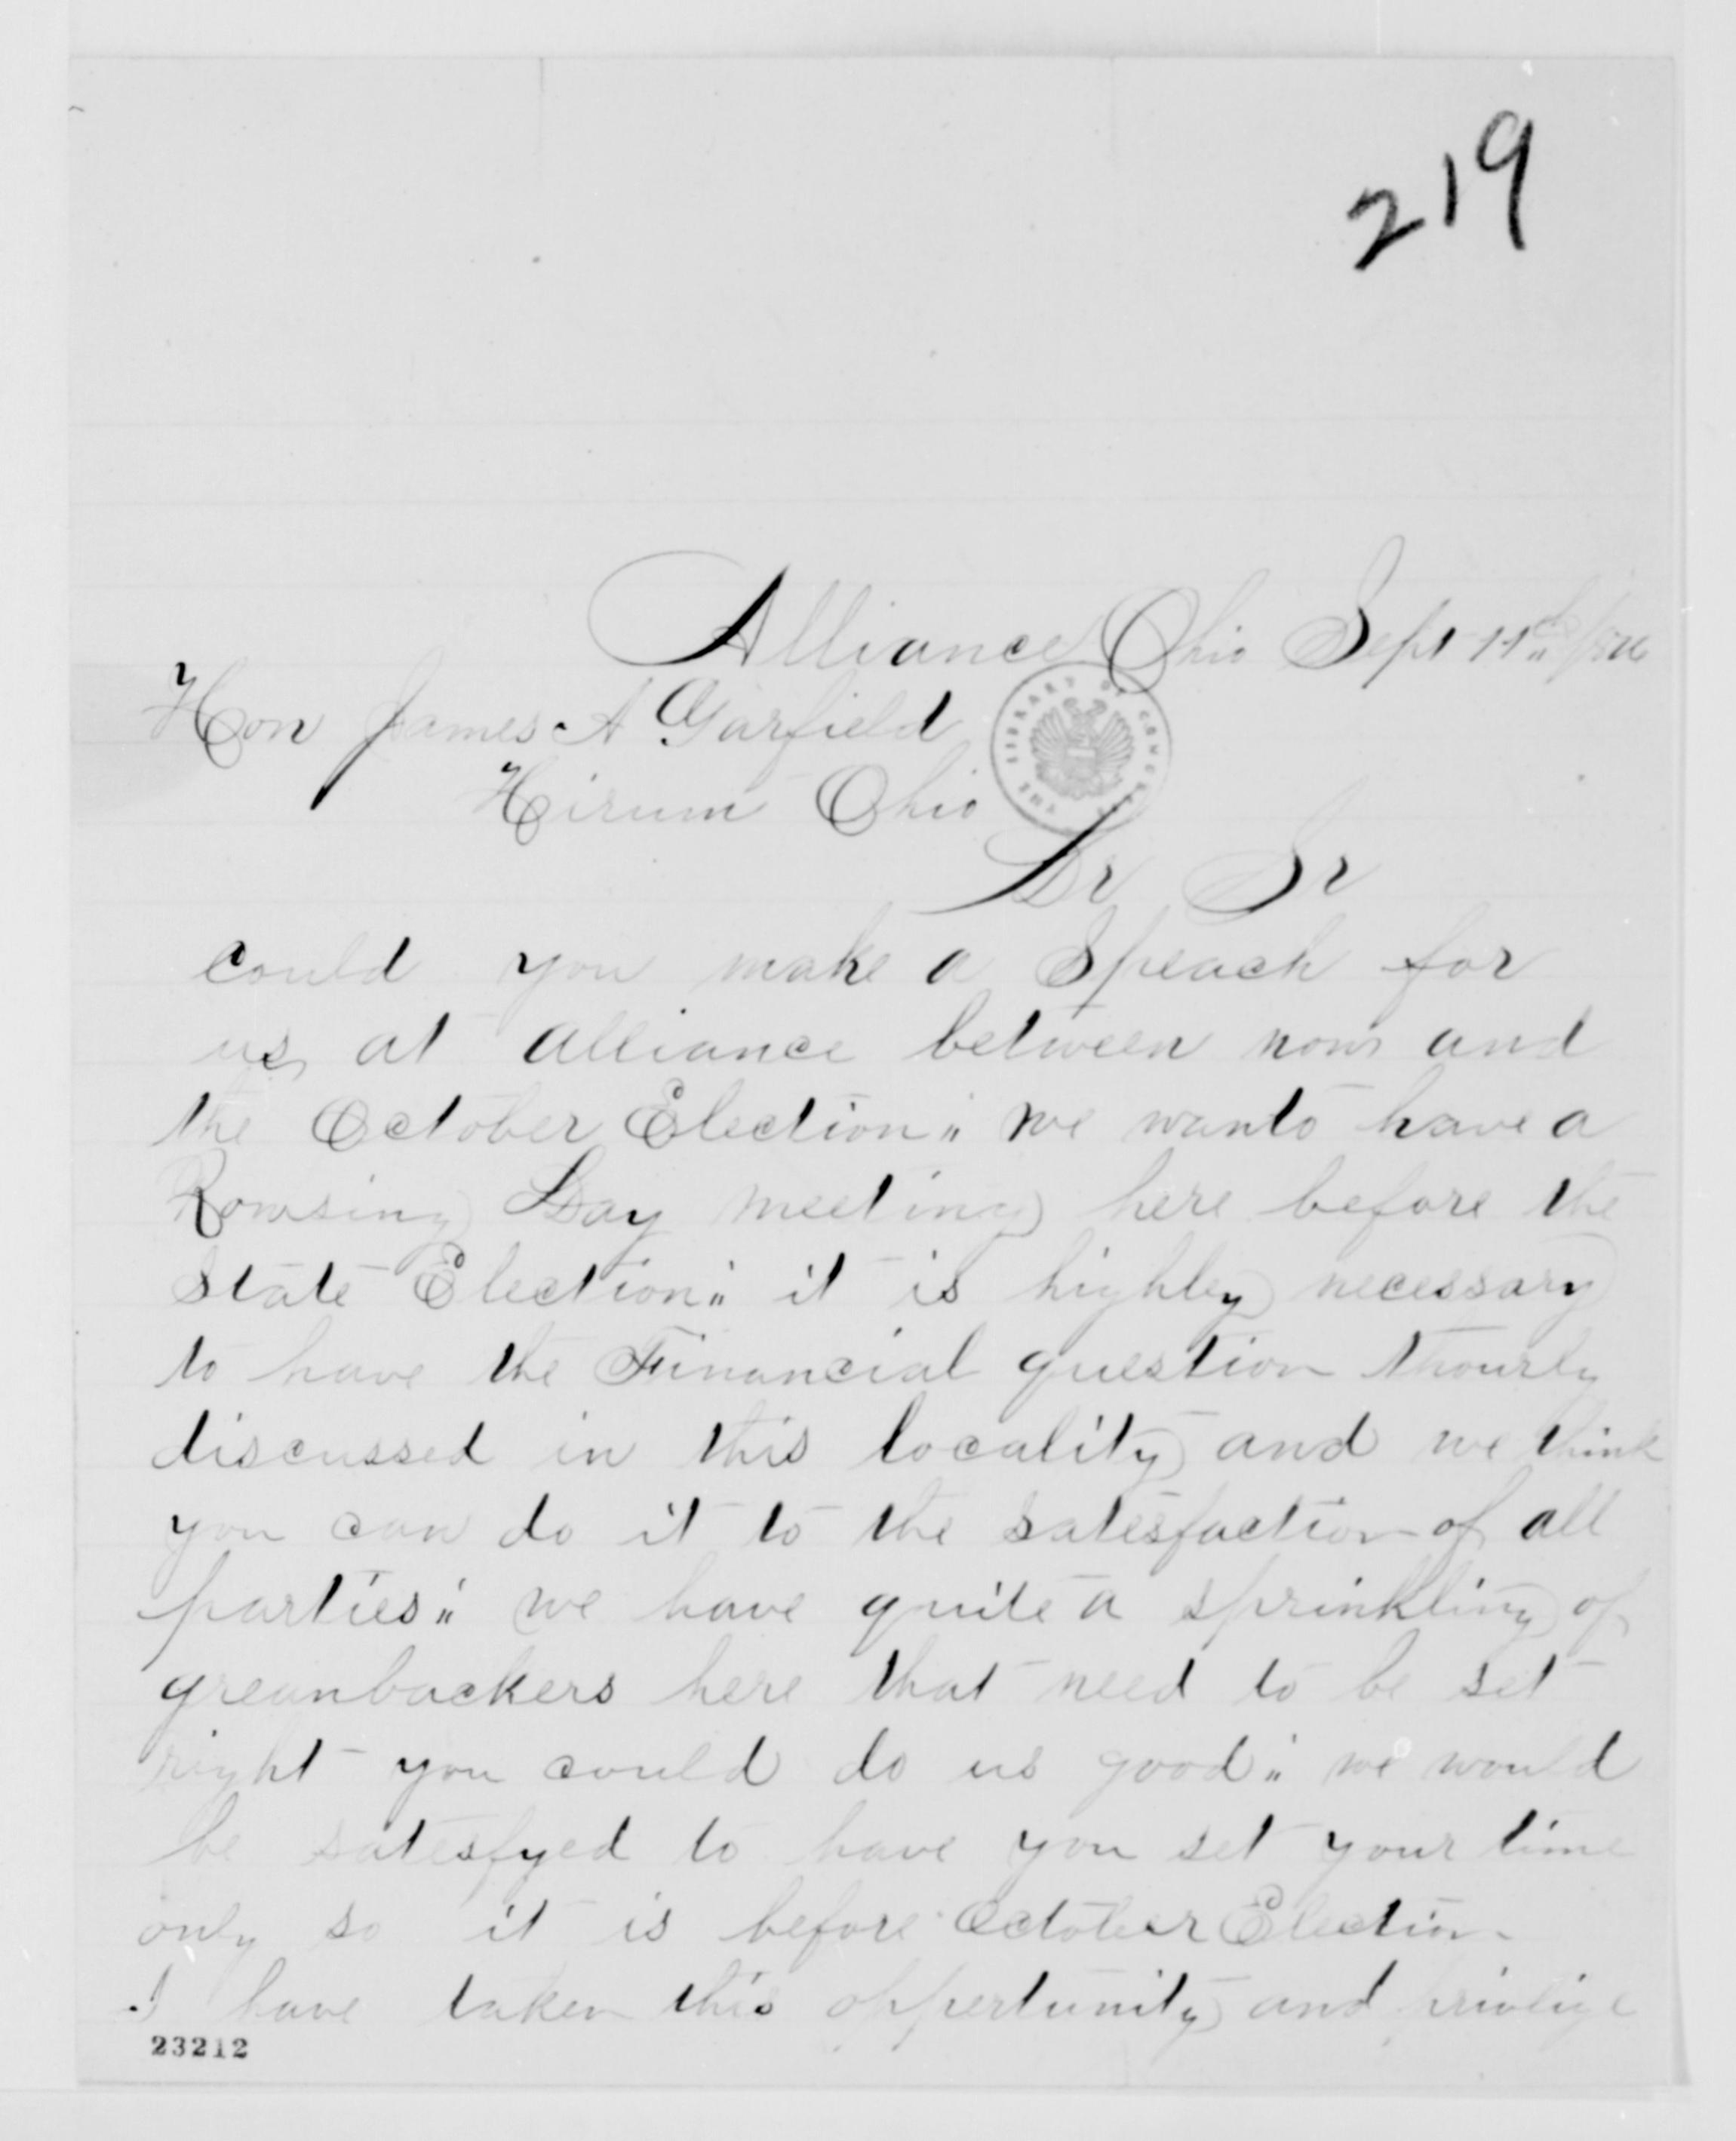 219
Alliance Ohio Sept 11th
Hon James A Garfield
Hirum Ohio
THE LIBRARY OF CONGRESS
Dr Sr
could you make a Speach for
us at Alliance between now and
the October Election " we wanto have a
Rowsing Day meeting here before the
State Election " it is highley necessary
to have the Financial question thourly
discussed in this locality and we think
you can do it to the satesfaction of all
parties " we have quite a sprinkling of
greanbackers here that need to be set
right you could do us good " we would
be satesfyed to have you set your time
only so it is before October Election
I have taken this oppertunity and privlige
23212